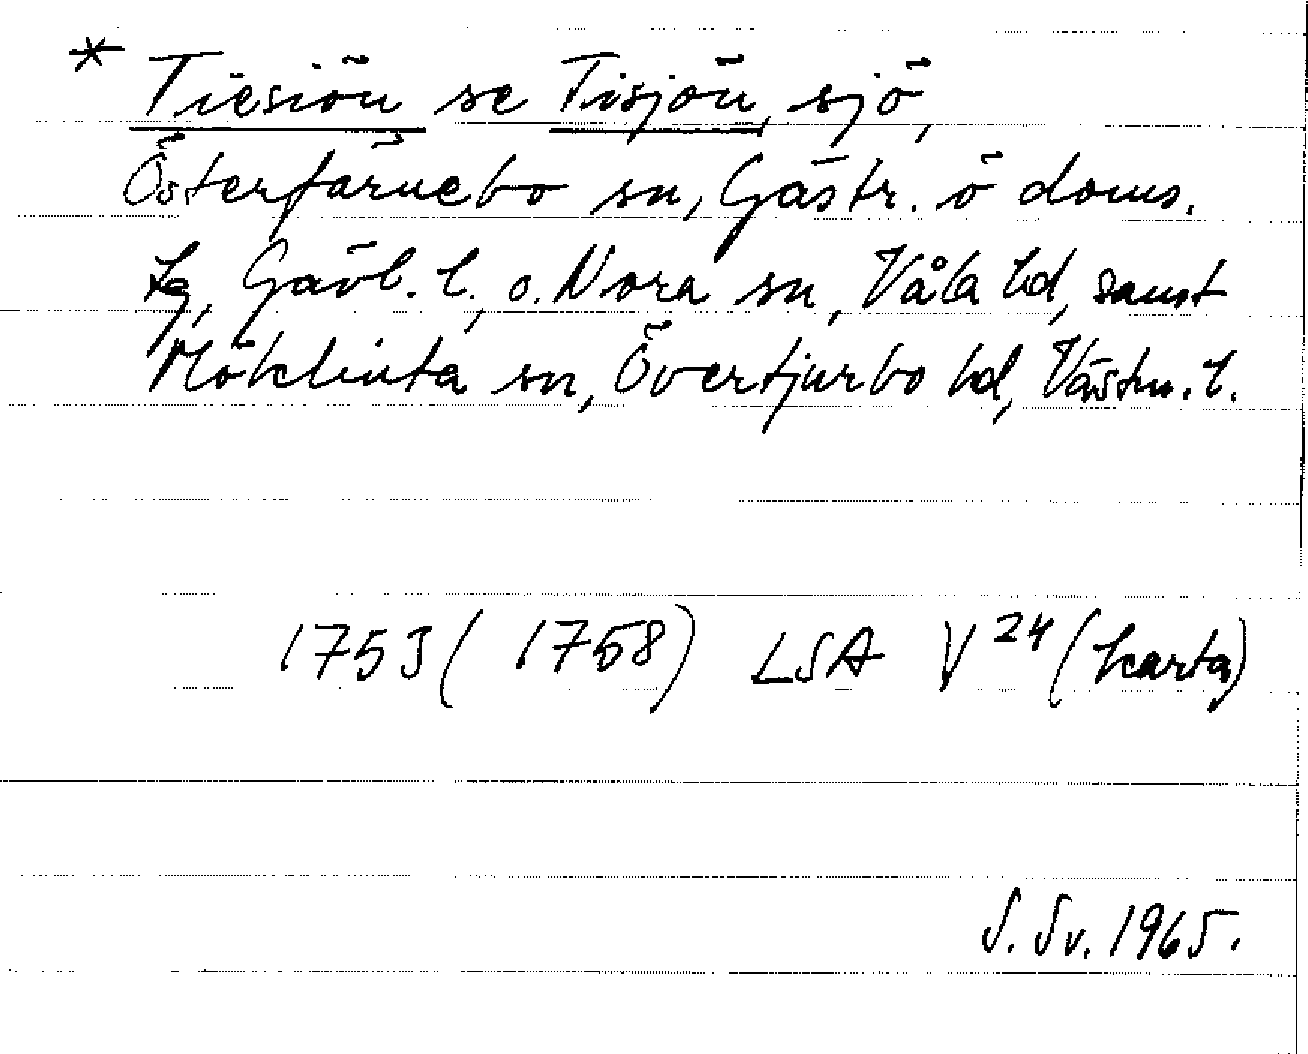 * Tiesiön se Tisjön, sjö,
Österfärnebo sn, Gästr. ö doms.
lg, Gävl. l., o. Nora sn, Våla hd, samt
Möklinta sn, Övertjurbo hd, Västm. l.
1753 (1758) LSA V 24 (karta)
S. Sv. 1965.